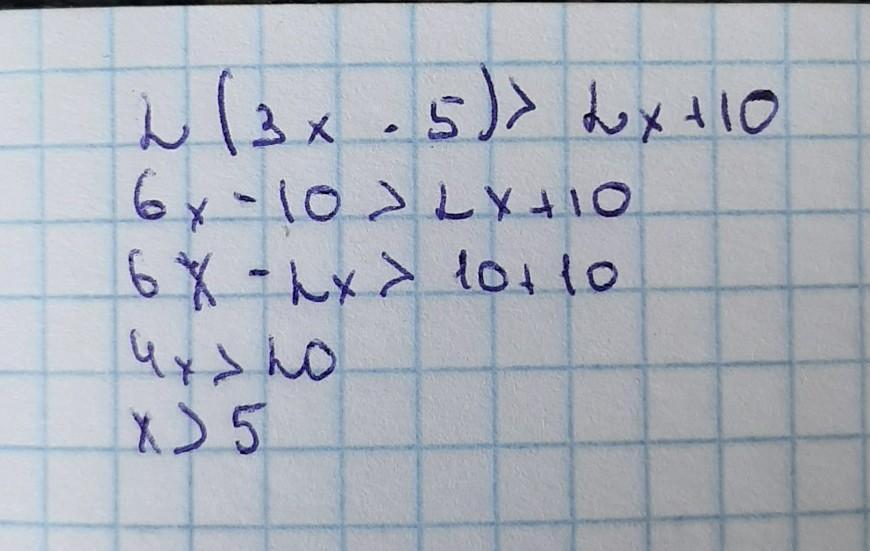 2(3x - 5) > 2x + 10
6x - 10 > 2x + 10
6x - 2x > 10 + 10
4x > 20
x > 5